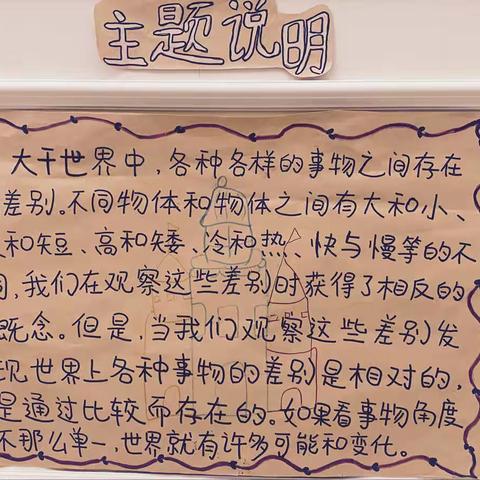 主题说明
大千世界中,各种各样的事物之间存在
差别。不同物体和物体之间有大和小、
和短、高和矮、冷和热、快与慢等的不
同,我们在观察这些差别时获得了相反的
概念。但是,当我们观察这些差别发
现世界上各种事物的差别是相对的,
是通过比较而存在的。如果看事物角度
不那么单一,世界就有许多可能和变化。